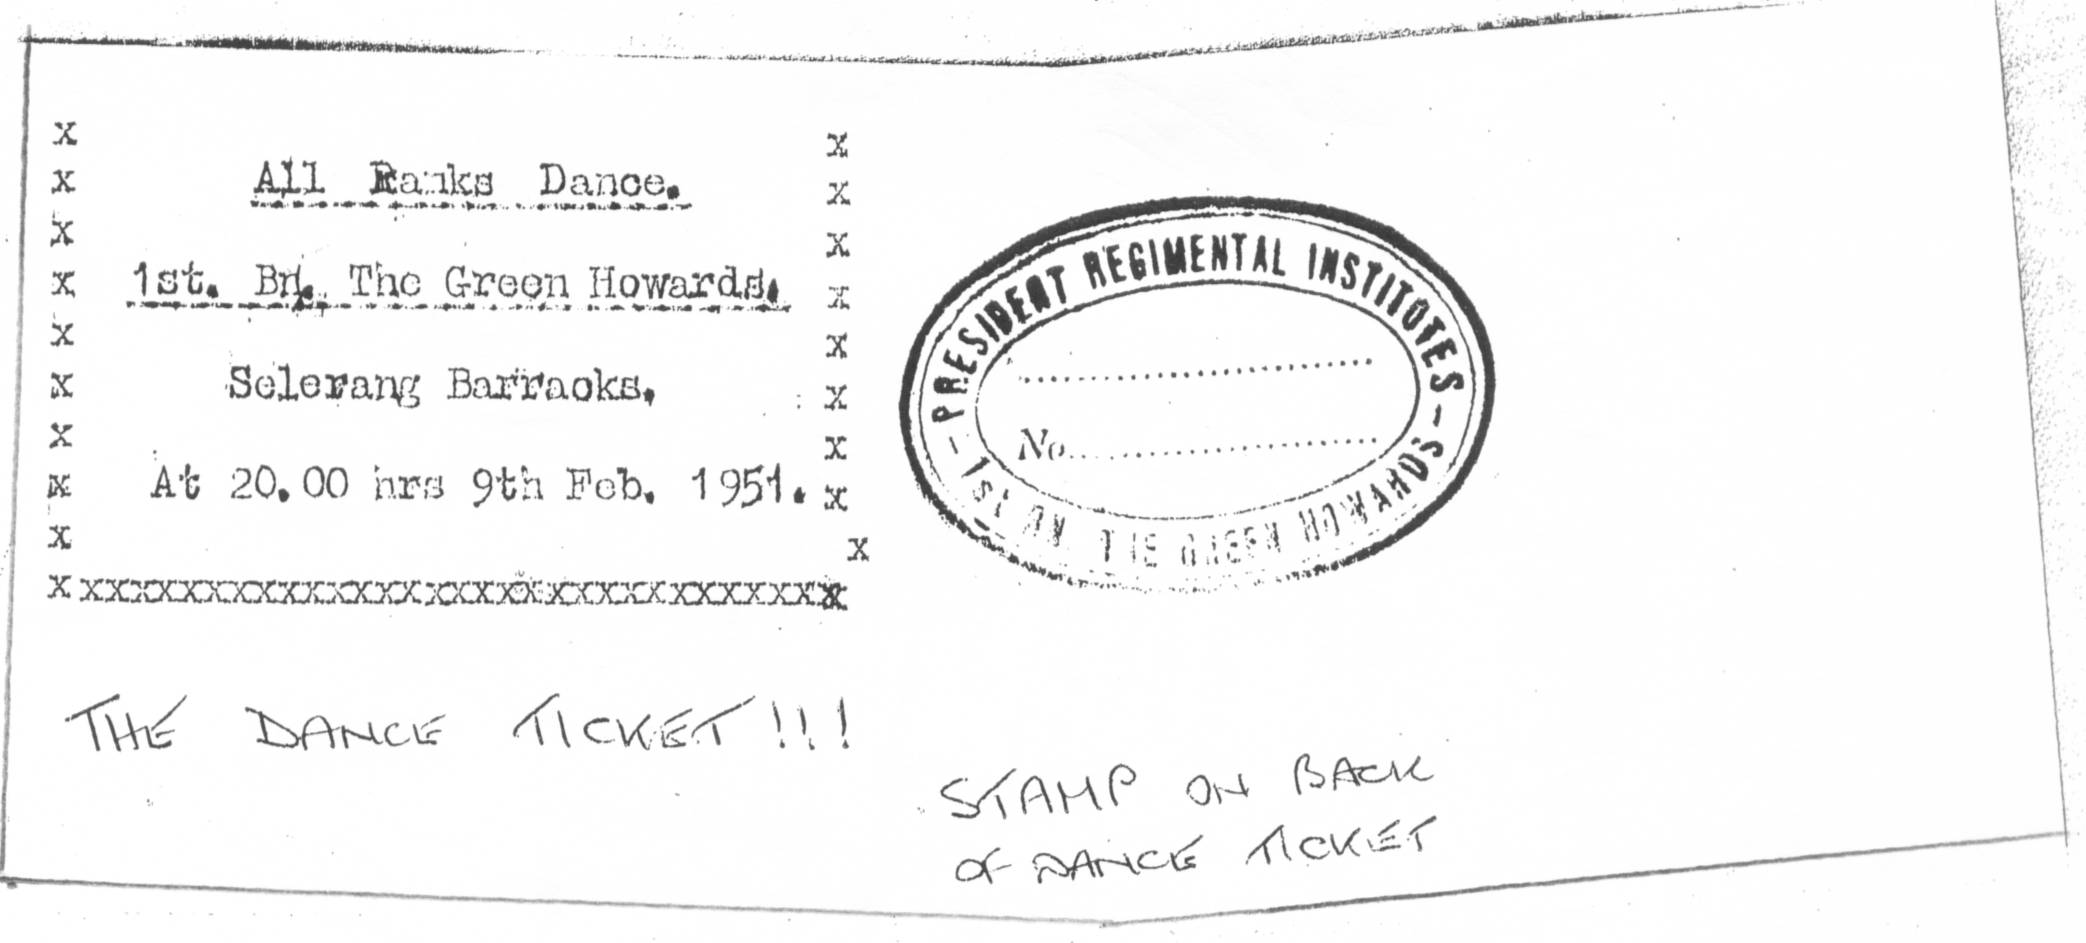 All Ranks Dance.
1st. Bn. The Green Howards.
Selerang Barracks.
At 20.00 hrs 9th Feb. 1951.
THE DANCE TICKET!!!
PRESIDENT REGIMENTAL INSTITUTES
No.
- 1st BN THE GREEN HOWARDS -
STAMP ON BACK
OF DANCE TICKET